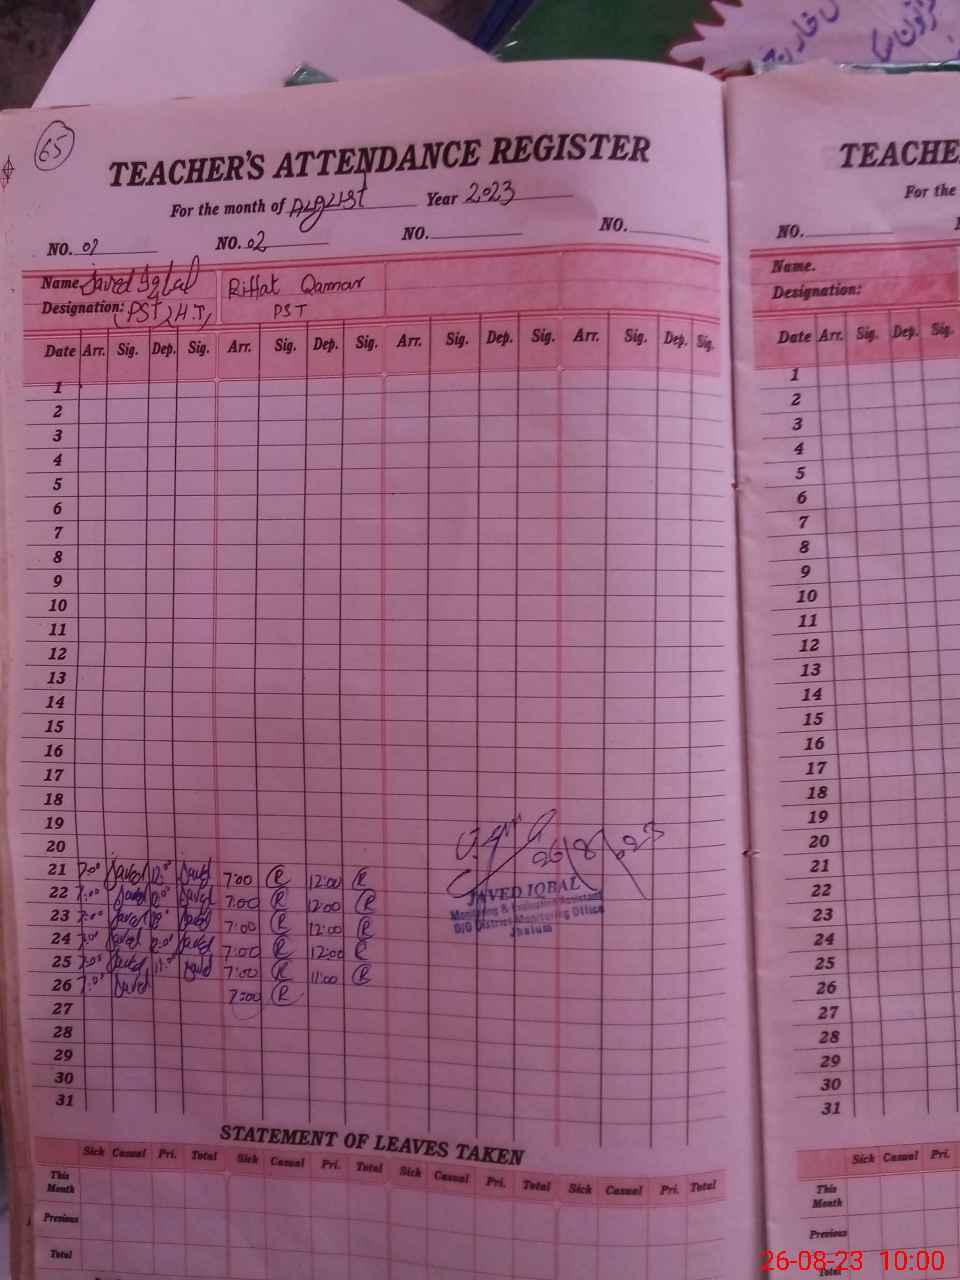 65
TEACHER'S ATTENDANCE REGISTER
For the month of August Year 2023
NO. 01 NO. 02 NO. NO.
Name Javed Iqbal Riffat Qamar
Designation: (PST) H.T, PST
Date Arr. Sig. Dep. Sig. Arr. Sig. Dep. Sig. Arr. Sig. Dep. Sig. Arr. Sig. Dep. Sig.
1
2
3
4
5
6
7
8
9
10
11
12
13
14
15
16
17
18
19
20
21 7:00 Javed 12:00 Javed 7:00 R 12:00 R
22 7:00 Javed 12:00 Javed 7:00 R 12:00 R
23 7:00 Javed 12:00 Javed 7:00 R 12:00 R
24 7:00 Javed 12:00 Javed 7:00 R 12:00 R
25 7:00 Javed 11:00 Javed 7:00 R 11:00 R
26 7:00 Javed 7:00 R
27
28
29
30
31
26/8/023
JAVED IQBAL
Monitoring & Evaluation Assistant
O/O District Monitoring Office
Jhelum
STATEMENT OF LEAVES TAKEN
Sick Casual Pri. Total Sick Casual Pri. Total Sick Casual Pri. Total Sick Casual Pri. Total
This Month
Previous
Total
TEACHE
For the
NO.
Name.
Designation:
Date Arr. Sig. Dep. Sig.
1
2
3
4
5
6
7
8
9
10
11
12
13
14
15
16
17
18
19
20
21
22
23
24
25
26
27
28
29
30
31
Sick Casual Pri.
This Month
Previous
Total
26-08-23 10:00